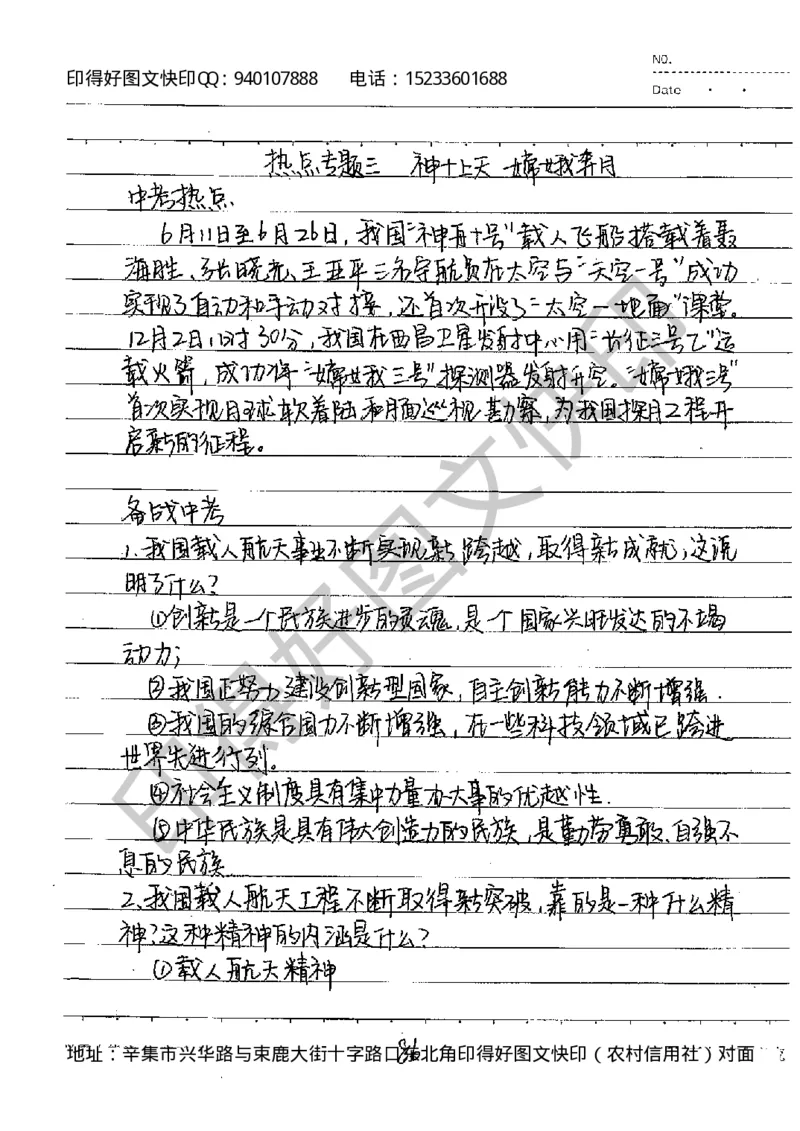 NO.
印得好图文快印QQ：940107888 电话：15233601688
Date
热点专题三 神十上天 嫦娥奔月
中考热点.
6月11日至6月26日，我国“神舟十号”载人飞船搭载着聂
海胜、张晓光、王亚平三名宇航员在太空与“天空一号”成功
实现了自动和手动对接，还首次开设了“太空一地面”课堂。
12月2日1时30分，我国在西昌卫星发射中心用“长征三号乙”运
载火箭，成功将“嫦娥三号”探测器发射升空。“嫦娥三号”
首次实现月球软着陆和月面巡视勘察，为我国探月工程开
启新的征程。
备战中考
1、我国载人航天事业不断实现新跨越，取得新成就，这说
明了什么？
①创新是一个民族进步的灵魂，是一个国家兴旺发达的不竭
动力；
②我国正努力建设创新型国家，自主创新能力不断增强.
③我国的综合国力不断增强，在一些科技领域已跨进
世界先进行列。
④社会主义制度具有集中力量办大事的优越性.
⑤中华民族是具有伟大创造力的民族，是勤劳勇敢、自强不
息的民族
2、我国载人航天工程不断取得新突破，靠的是一种什么精
神？这种精神的内涵是什么？
①载人航天精神
地址：辛集市兴华路与束鹿大街十字路口 北角印得好图文快印（农村信用社）对面
印得好图文快印